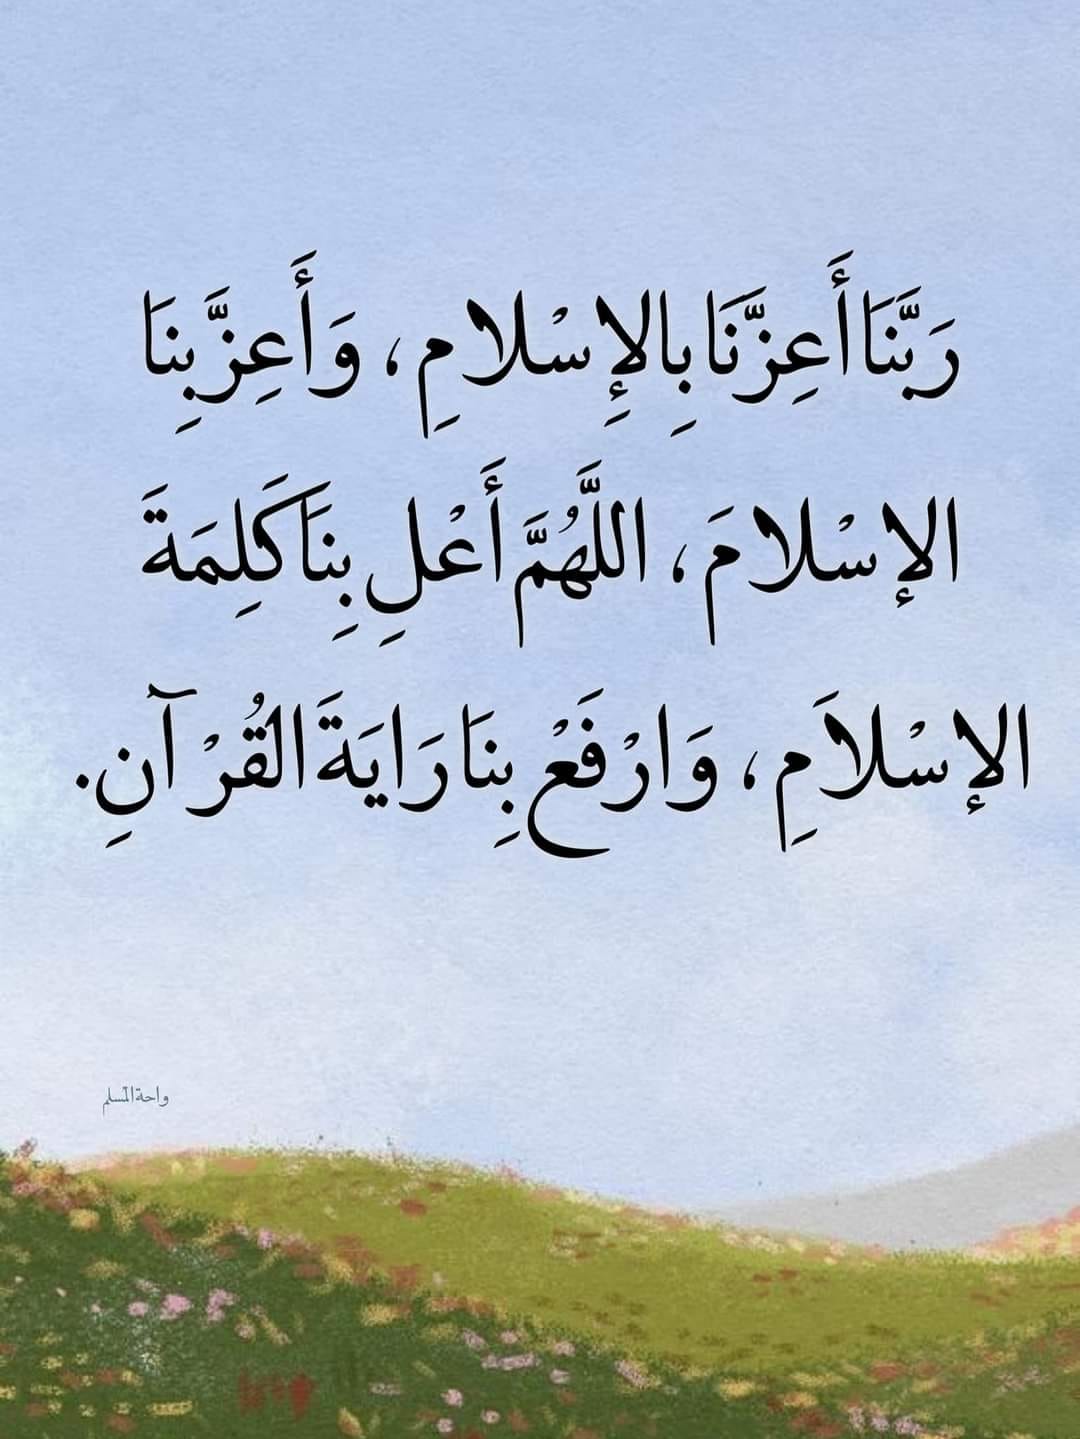 رَبَّنَا أَعِزَّنَا بِالإِسْلامِ، وَأَعِزَّ بِنَا
الإِسْلامَ، اللَّهُمَّ أَعْلِ بِنَا كَلِمَةَ
الإِسْلاَمِ، وَارْفَعْ بِنَا رَايَةَ القُرْآنِ.
واحة المسلم